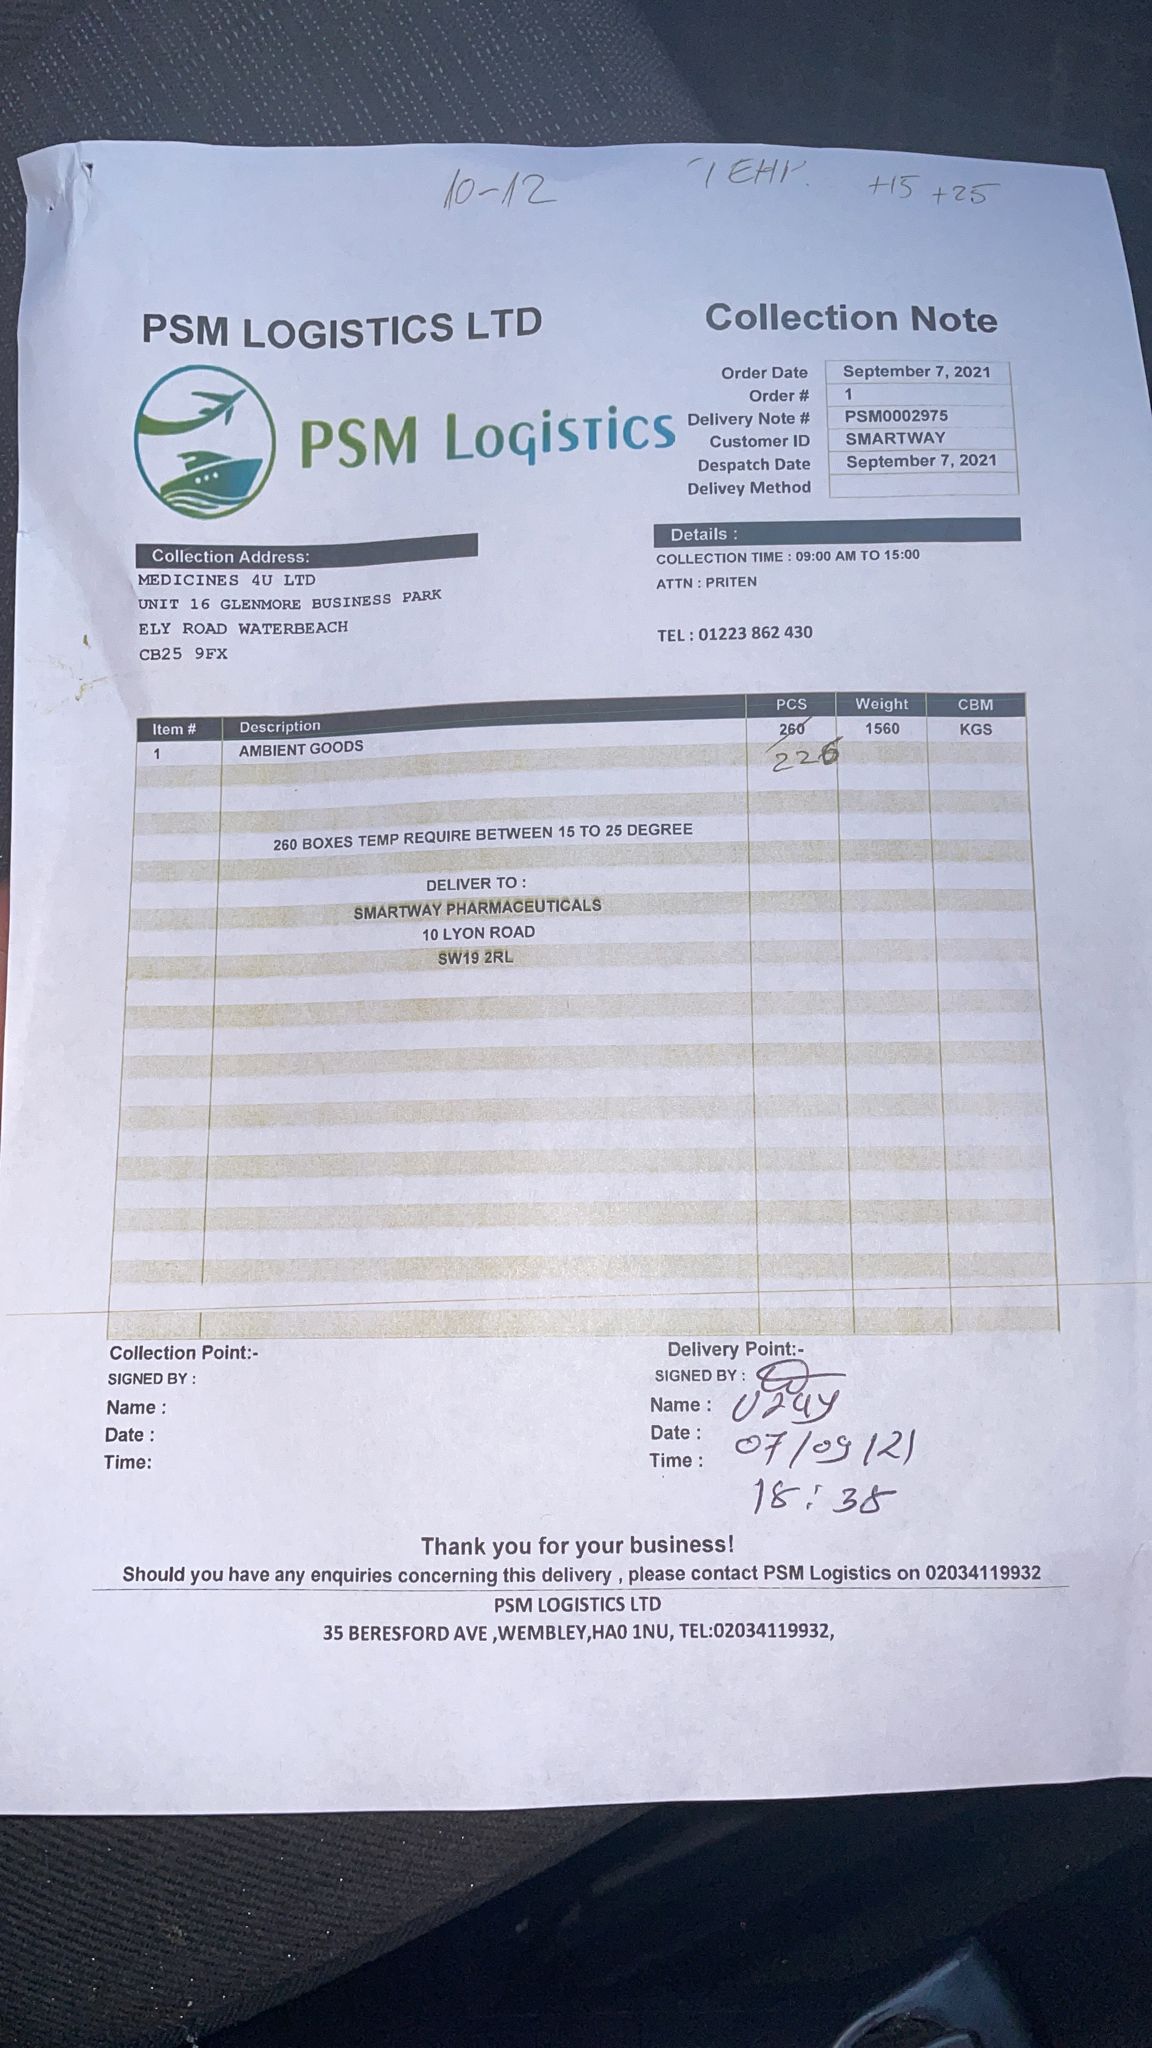 10-12
+15 +25
PSM LOGISTICS LTD
PSM Logistics
Collection Note
Order Date September 7, 2021
Order # 1
Delivery Note # PSM0002975
Customer ID SMARTWAY
Despatch Date September 7, 2021
Delivey Method
Collection Address:
MEDICINES 4U LTD
UNIT 16 GLENMORE BUSINESS PARK
ELY ROAD WATERBEACH
CB25 9FX
Details :
COLLECTION TIME : 09:00 AM TO 15:00
ATTN : PRITEN
TEL : 01223 862 430
Item # Description PCS Weight CBM
1 AMBIENT GOODS 260 1560 KGS
226
260 BOXES TEMP REQUIRE BETWEEN 15 TO 25 DEGREE
DELIVER TO :
SMARTWAY PHARMACEUTICALS
10 LYON ROAD
SW19 2RL
Collection Point:-
SIGNED BY :
Name :
Date :
Time:
Delivery Point:-
SIGNED BY :
Name :
Date : 07/09/21
Time : 18:38
Thank you for your business!
Should you have any enquiries concerning this delivery , please contact PSM Logistics on 02034119932
PSM LOGISTICS LTD
35 BERESFORD AVE ,WEMBLEY,HA0 1NU, TEL:02034119932,